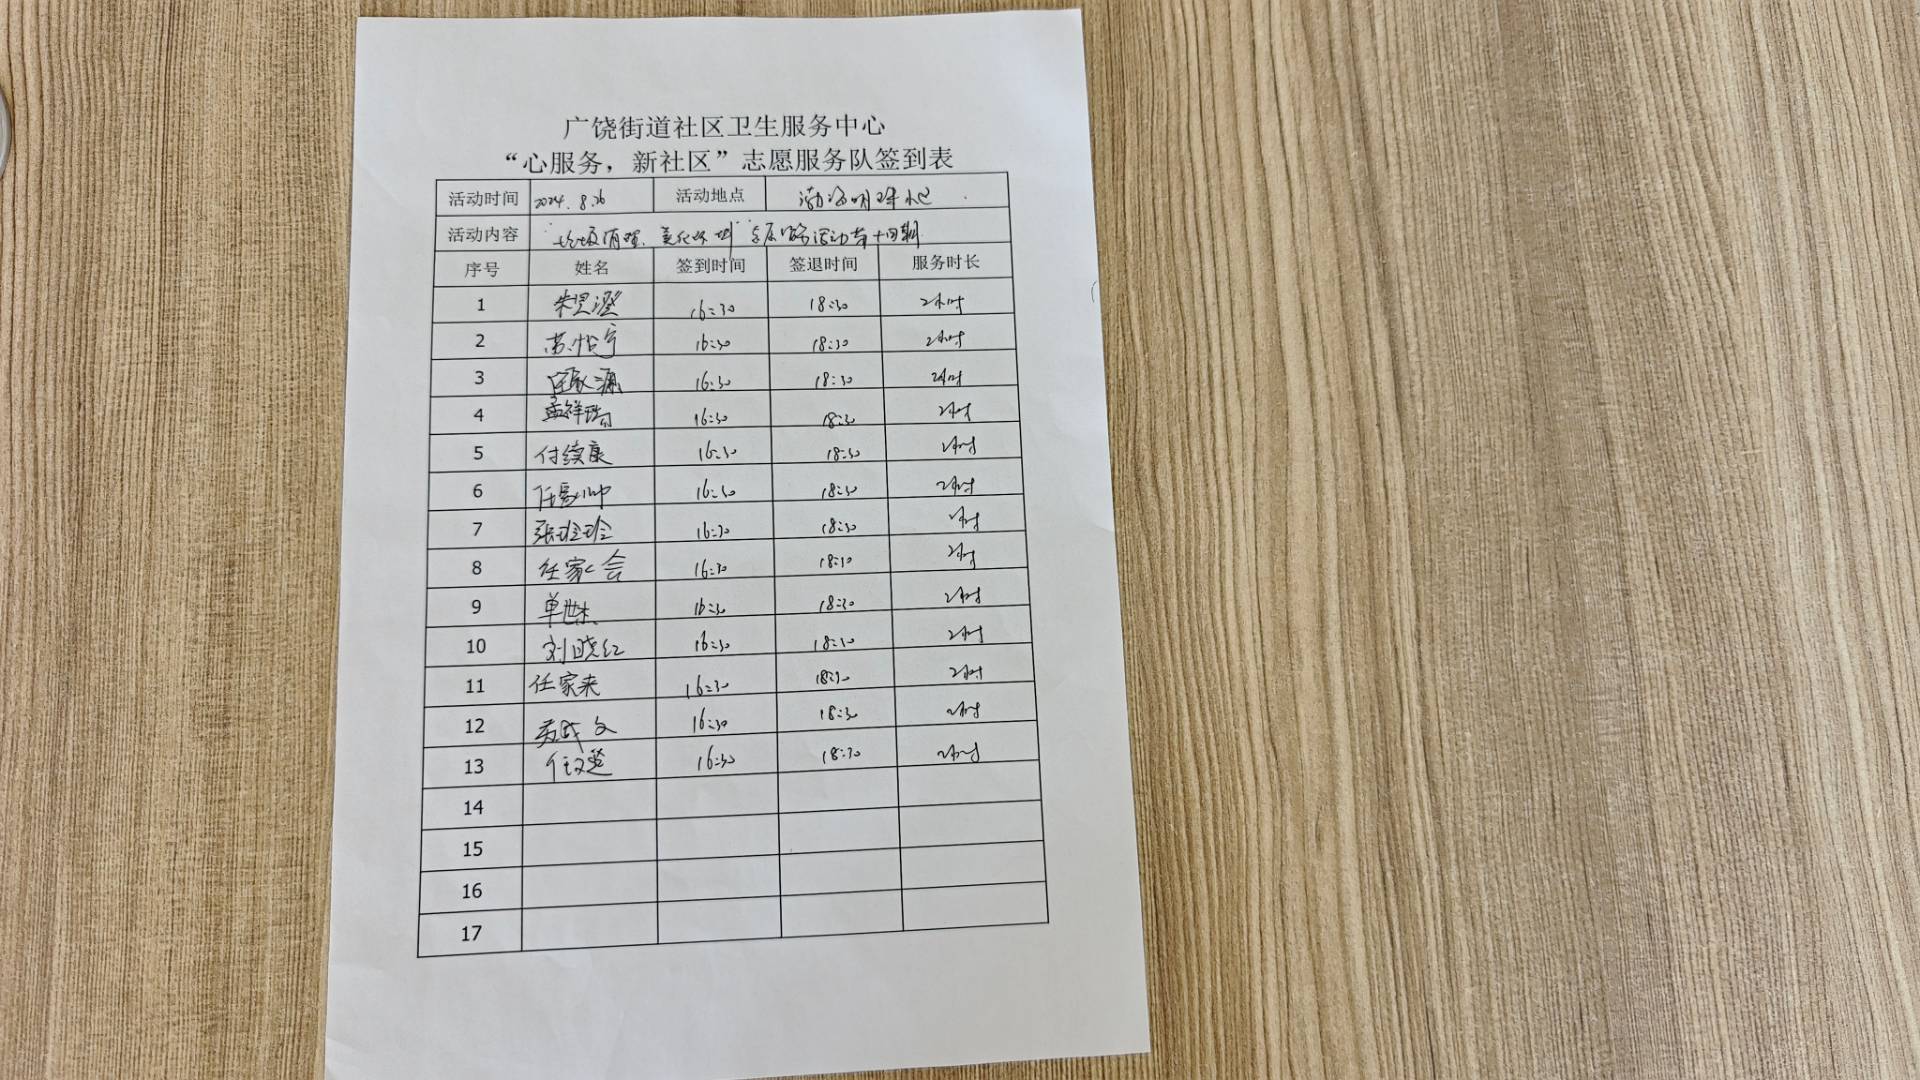 广饶街道社区卫生服务中心
“心服务，新社区”志愿服务队签到表
活动时间 2024.8.26 活动地点 渤海明珠
活动内容 “垃圾清理、美化环境”志愿服务活动第十四期
序号 姓名 签到时间 签退时间 服务时长
1 16:30 18:30 2小时
2 苏怡宁 16:30 18:30 2小时
3 16:30 18:30 2小时
4 孟祥瑞 16:30 18:30 2小时
5 付续康 16:30 18:30 2小时
6 16:30 18:30 2小时
7 张玲玲 16:30 18:30 2小时
8 任家会 16:30 18:30 2小时
9 单世杰 16:30 18:30 2小时
10 刘晓红 16:30 18:30 2小时
11 任家来 16:30 18:30 2小时
12 16:30 18:30 2小时
13 16:30 18:30 2小时
14
15
16
17